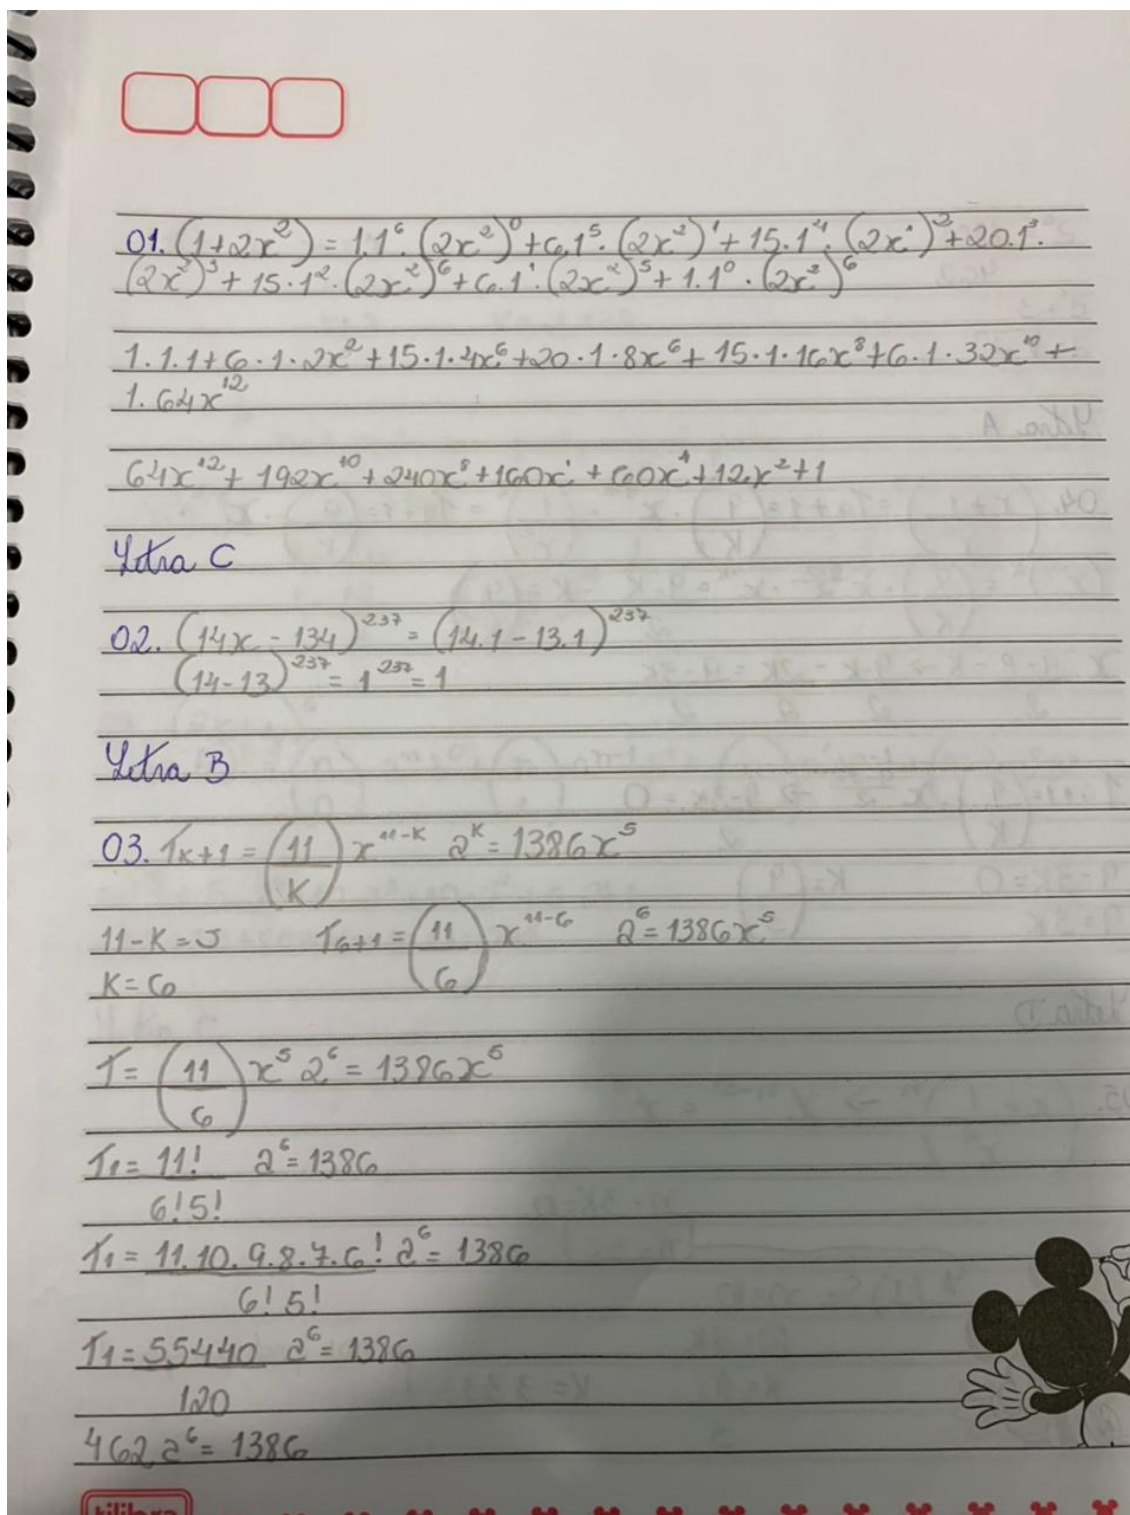 01. (1+2x²) = 1.1⁶.(2x²)⁰+6.1⁵.(2x²)¹+15.1⁴.(2x²)²+20.1³.
(2x²)³+15.1².(2x²)⁶+6.1¹.(2x²)⁵+1.1⁰.(2x²)⁶
1.1.1+6.1.2x²+15.1.4x⁶+20.1.8x⁶+15.1.16x⁸+6.1.32x¹⁰+
1.64x¹²
64x¹²+192x¹⁰+240x⁸+160x +60x⁴+12x²+1
Letra C
02. (14x - 134)²³⁷ = (14.1-13.1)²³⁷
(14-13)²³⁷ = 1²³⁷ = 1
Letra B
03. Tk+1 = (11/K) x¹¹⁻ᴷ a^K = 1386x⁵
11-K=5 T6+1 = (11/6) x¹¹⁻⁶ a⁶ = 1386x⁵
K=6
T = (11/6) x⁵ a⁶ = 1386x⁵
T1 = 11! a⁶ = 1386
6!5!
T1 = 11.10.9.8.7.6! a⁶ = 1386
6!5!
T1 = 55440 a⁶ = 1386
120
462 a⁶ = 1386
tilibra